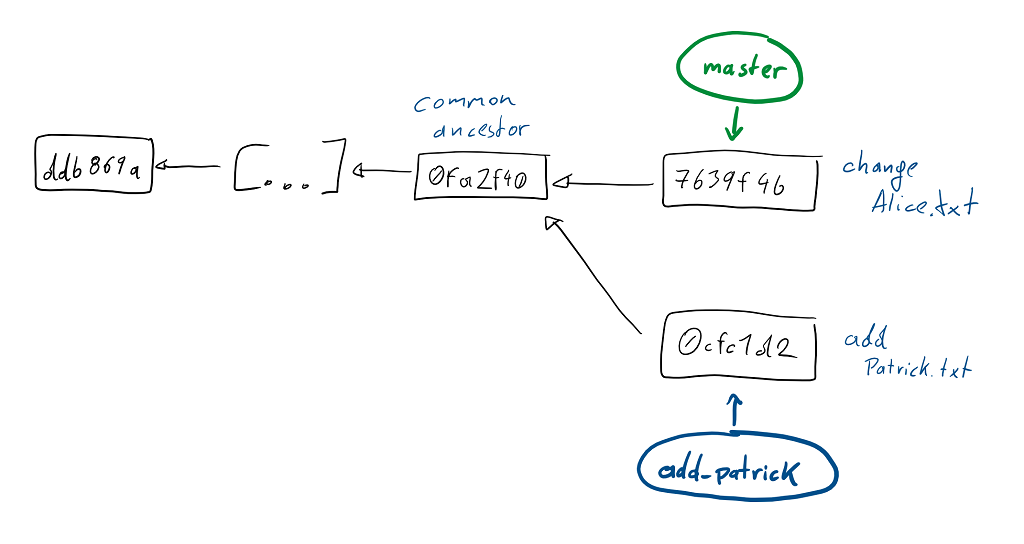 master
common
ancestor
ddb869a
[...]
0fa2f40
7639f46
change
Alice.txt
0cfc1d2
add
Patrick.txt
add-patrick